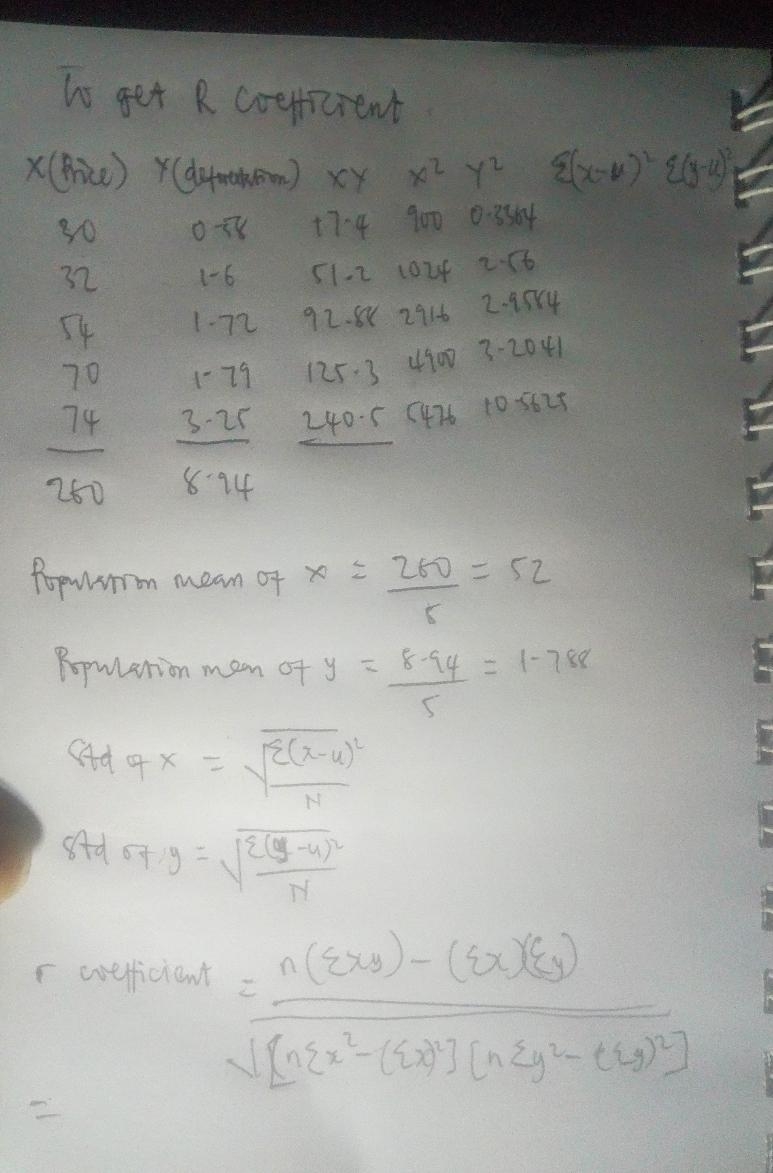 To get R coefficient
X(Price) Y(deforestation) XY X² Y² Σ(x-u)² Σ(y-u)²
30 0.58 17.4 900 0.3364
32 1.6 51.2 1024 2.56
54 1.72 92.88 2916 2.9584
70 1.79 125.3 4900 3.2041
74 3.25 240.5 5476 10.5625
260 8.94
Population mean of x = 260/5 = 52
Population mean of y = 8.94/5 = 1.788
Std of x = √Σ(x-u)²/N
Std of y = √Σ(y-u)²/N
r coefficient = n(Σxy) - (Σx)(Σy)
√[nΣx²-(Σx)²][nΣy²-(Σy)²]
=